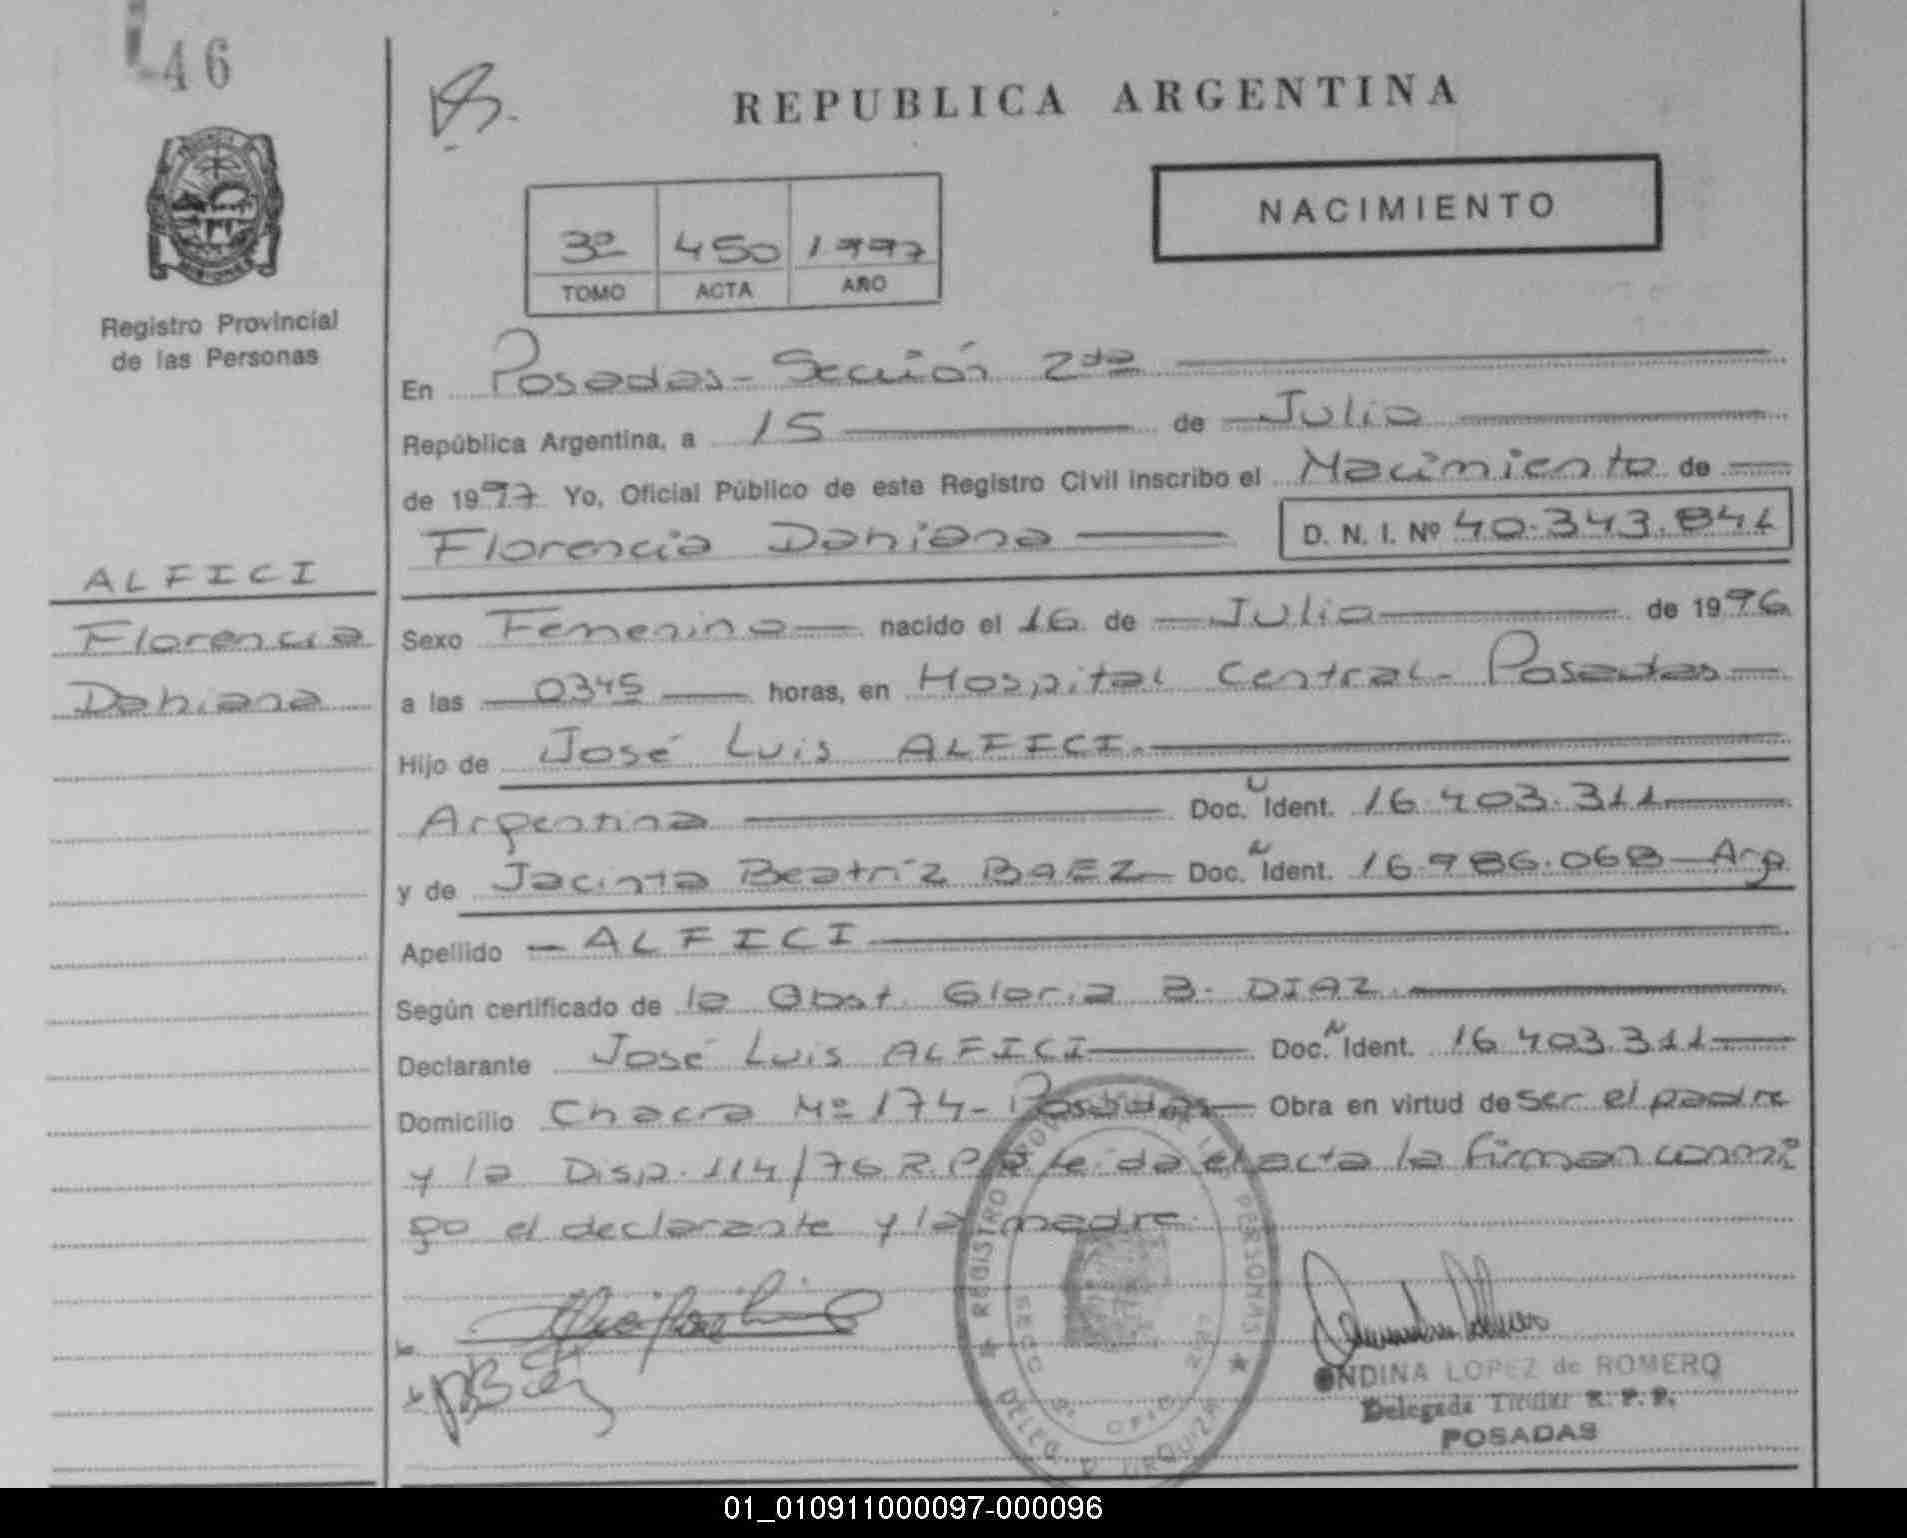 46
REPUBLICA ARGENTINA
NACIMIENTO
3º 450 1997
TOMO ACTA AÑO
Registro Provincial
de las Personas
En Posadas - Sección 2da
República Argentina, a 15 de Julio
de 1997 Yo, Oficial Público de este Registro Civil inscribo el Nacimiento de
Florencia Dahiana D. N. I. Nº 40.343.841
ALFICI
Florencia
Dahiana
Sexo Femenino nacido el 16 de Julio de 1996
a las 0345 horas, en Hospital Central - Posadas
Hijo de José Luis ALFICI.
Argentina Doc. Ident. 16.403.311
y de Jacinta Beatríz BAEZ Doc. Ident. 16.986.068 - Arg
Apellido - ALFICI
Según certificado de la Obst. Gloria B. DIAZ.
Declarante José Luis ALFICI Doc. Ident. 16.403.311
Domicilio Chacra Nº 174 - Posadas Obra en virtud de ser el padre
y la Disp. 114/76 R.P.P. Leida el acta la firman conmi
go el declarante y la madre.
REGISTRO PROVINCIAL DE LAS PERSONAS
ONDINA LOPEZ de ROMERO
Delegada Titular R. P. P.
POSADAS
01_010911000097-000096